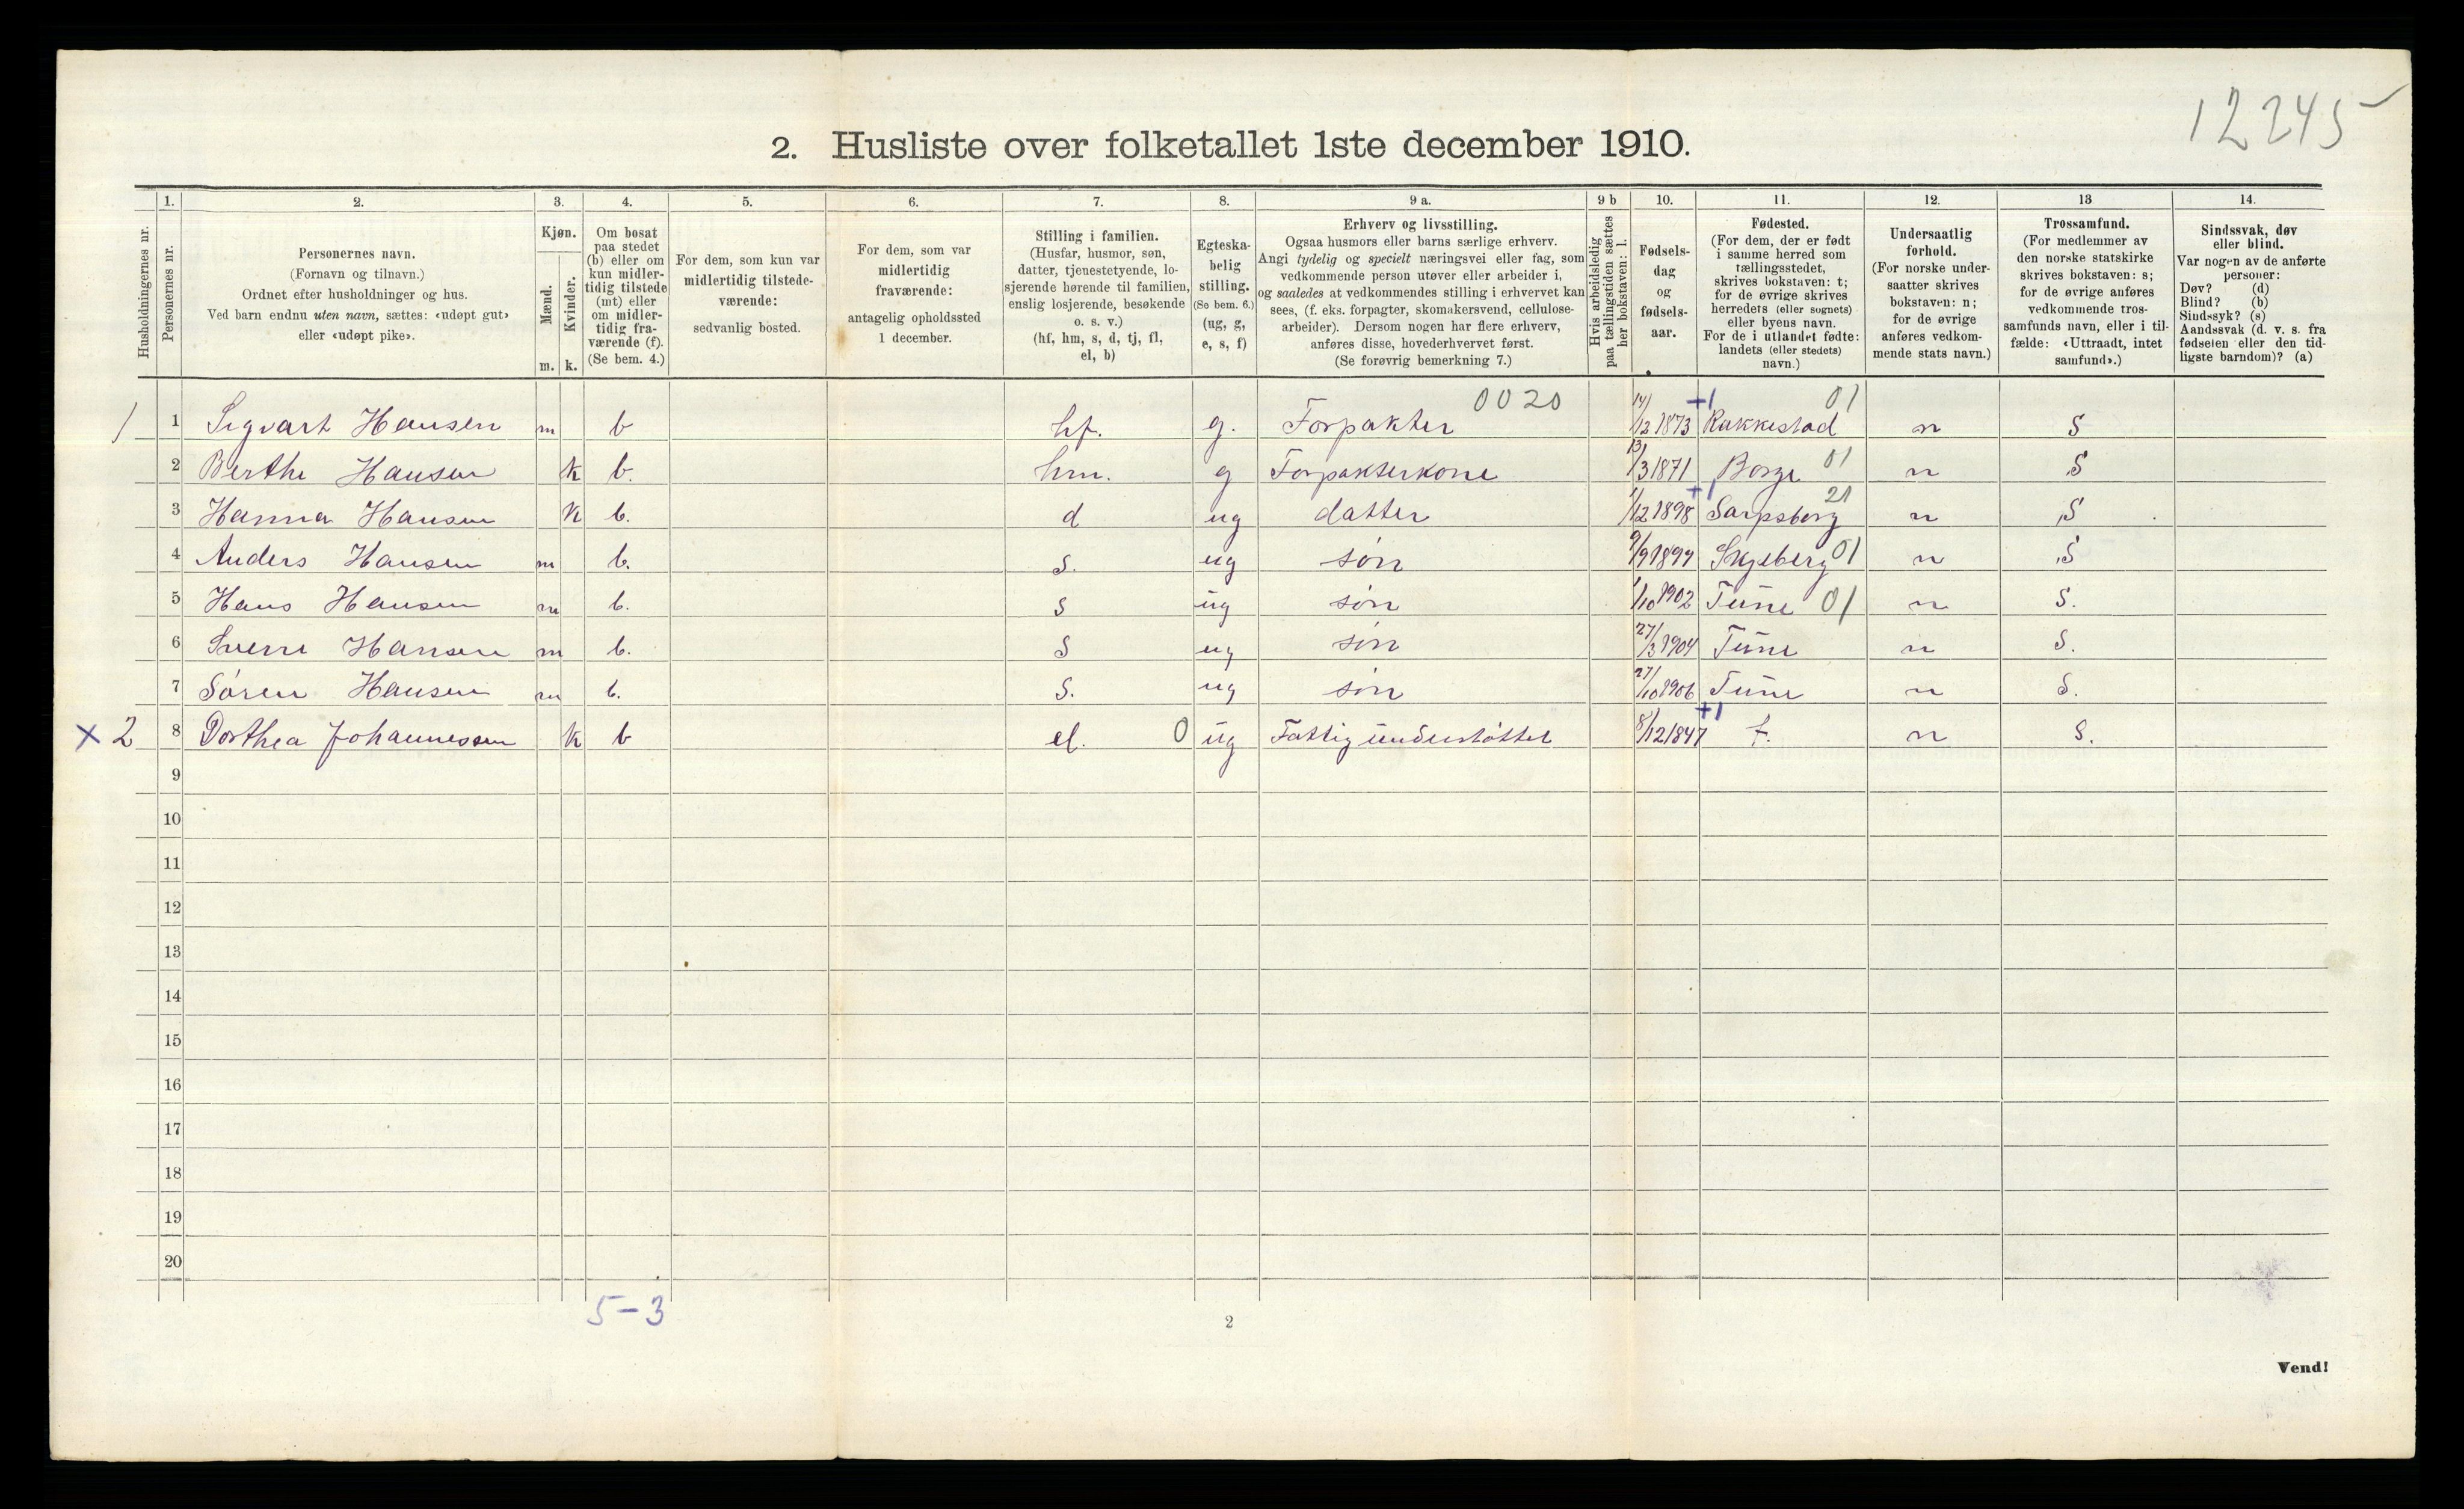 12245
2. Husliste over folketallet 1ste december 1910.
1. 2. 3. 4. 5. 6. 7. 8. 9 a. 9 b 10. 11. 12. 13 14.
Husholdningernes nr.
Personernes nr.
Personernes navn.
(Fornavn og tilnavn.)
Ordnet efter husholdninger og hus.
Ved barn endnu uten navn, sættes: «udøpt gut»
eller «udøpt pike».
Kjøn.
Mænd.
Kvinder.
m. k.
Om bosat
paa stedet
(b) eller om
kun midler-
tidig tilstede
(mt) eller
om midler-
tidig fra-
værende (f).
(Se bem. 4.)
For dem, som kun var
midlertidig tilstede-
værende:
sedvanlig bosted.
For dem, som var
midlertidig
fraværende:
antagelig opholdssted
1 december.
Stilling i familien.
(Husfar, husmor, søn,
datter, tjenestetyende, lo-
sjerende hørende til familien,
enslig losjerende, besøkende
o. s. v.)
(hf, hm, s, d, tj, fl,
el, b)
Egteska-
belig
stilling.
(Se bem. 6.)
(ug, g,
e, s, f)
Erhverv og livsstilling.
Ogsaa husmors eller barns særlige erhverv.
Angi tydelig og specielt næringsvei eller fag, som
vedkommende person utøver eller arbeider i,
og saaledes at vedkommendes stilling i erhvervet kan
sees, (f. eks. forpagter, skomakersvend, cellulose-
arbeider). Dersom nogen har flere erhverv,
anføres disse, hovederhvervet først.
(Se forøvrig bemerkning 7.)
Hvis arbeidsledig
paa tællingstiden sættes
her bokstaven: l.
Fødsels-
dag
og
fødsels-
aar.
Fødested.
(For dem, der er født
i samme herred som
tællingsstedet,
skrives bokstaven: t;
for de øvrige skrives
herredets (eller sognets)
eller byens navn.
For de i utlandet fødte:
landets (eller stedets)
navn.)
Undersaatlig
forhold.
(For norske under-
saatter skrives
bokstaven: n;
for de øvrige
anføres vedkom-
mende stats navn.)
Trossamfund.
(For medlemmer av
den norske statskirke
skrives bokstaven: s;
for de øvrige anføres
vedkommende tros-
samfunds navn, eller i til-
fælde: «Uttraadt, intet
samfund».)
Sindssvak, døv
eller blind.
Var nogen av de anførte
personer:
Døv? (d)
Blind? (b)
Sindssyk? (s)
Aandssvak (d. v. s. fra
fødselen eller den tid-
ligste barndom)? (a)
0020 +1 01
1 1 Sigvart Hansen m b hf. g. Forpakter 14/12 1873 Rakkestad n S
2 Berthe Hansen k b. hm. g Forpakterkone 13/3 1871 Borge 01 n S
+1 21
3 Hanna Hansen k b. d ug datter 1/12 1898 Sarpsborg n S
4 Anders Hansen m b. s. ug søn 9/9 1899 Skjeberg 01 n S
5 Hans Hansen m b. s ug søn 1/10 1902 Tune 01 n S.
6 Sverre Hansen m b. s ug søn 27/3 1904 Tune n S.
7 Søren Hansen m b. s. ug søn 27/10 1906 Tune n S.
+1
× 2 8 Dorthea Johannessen k b el. 0 ug Fattigunderstøttet 8/12 1847 t. n S.
9
10
11
12
13
14
15
16
17
18
19
20
5-3
2
Vend!